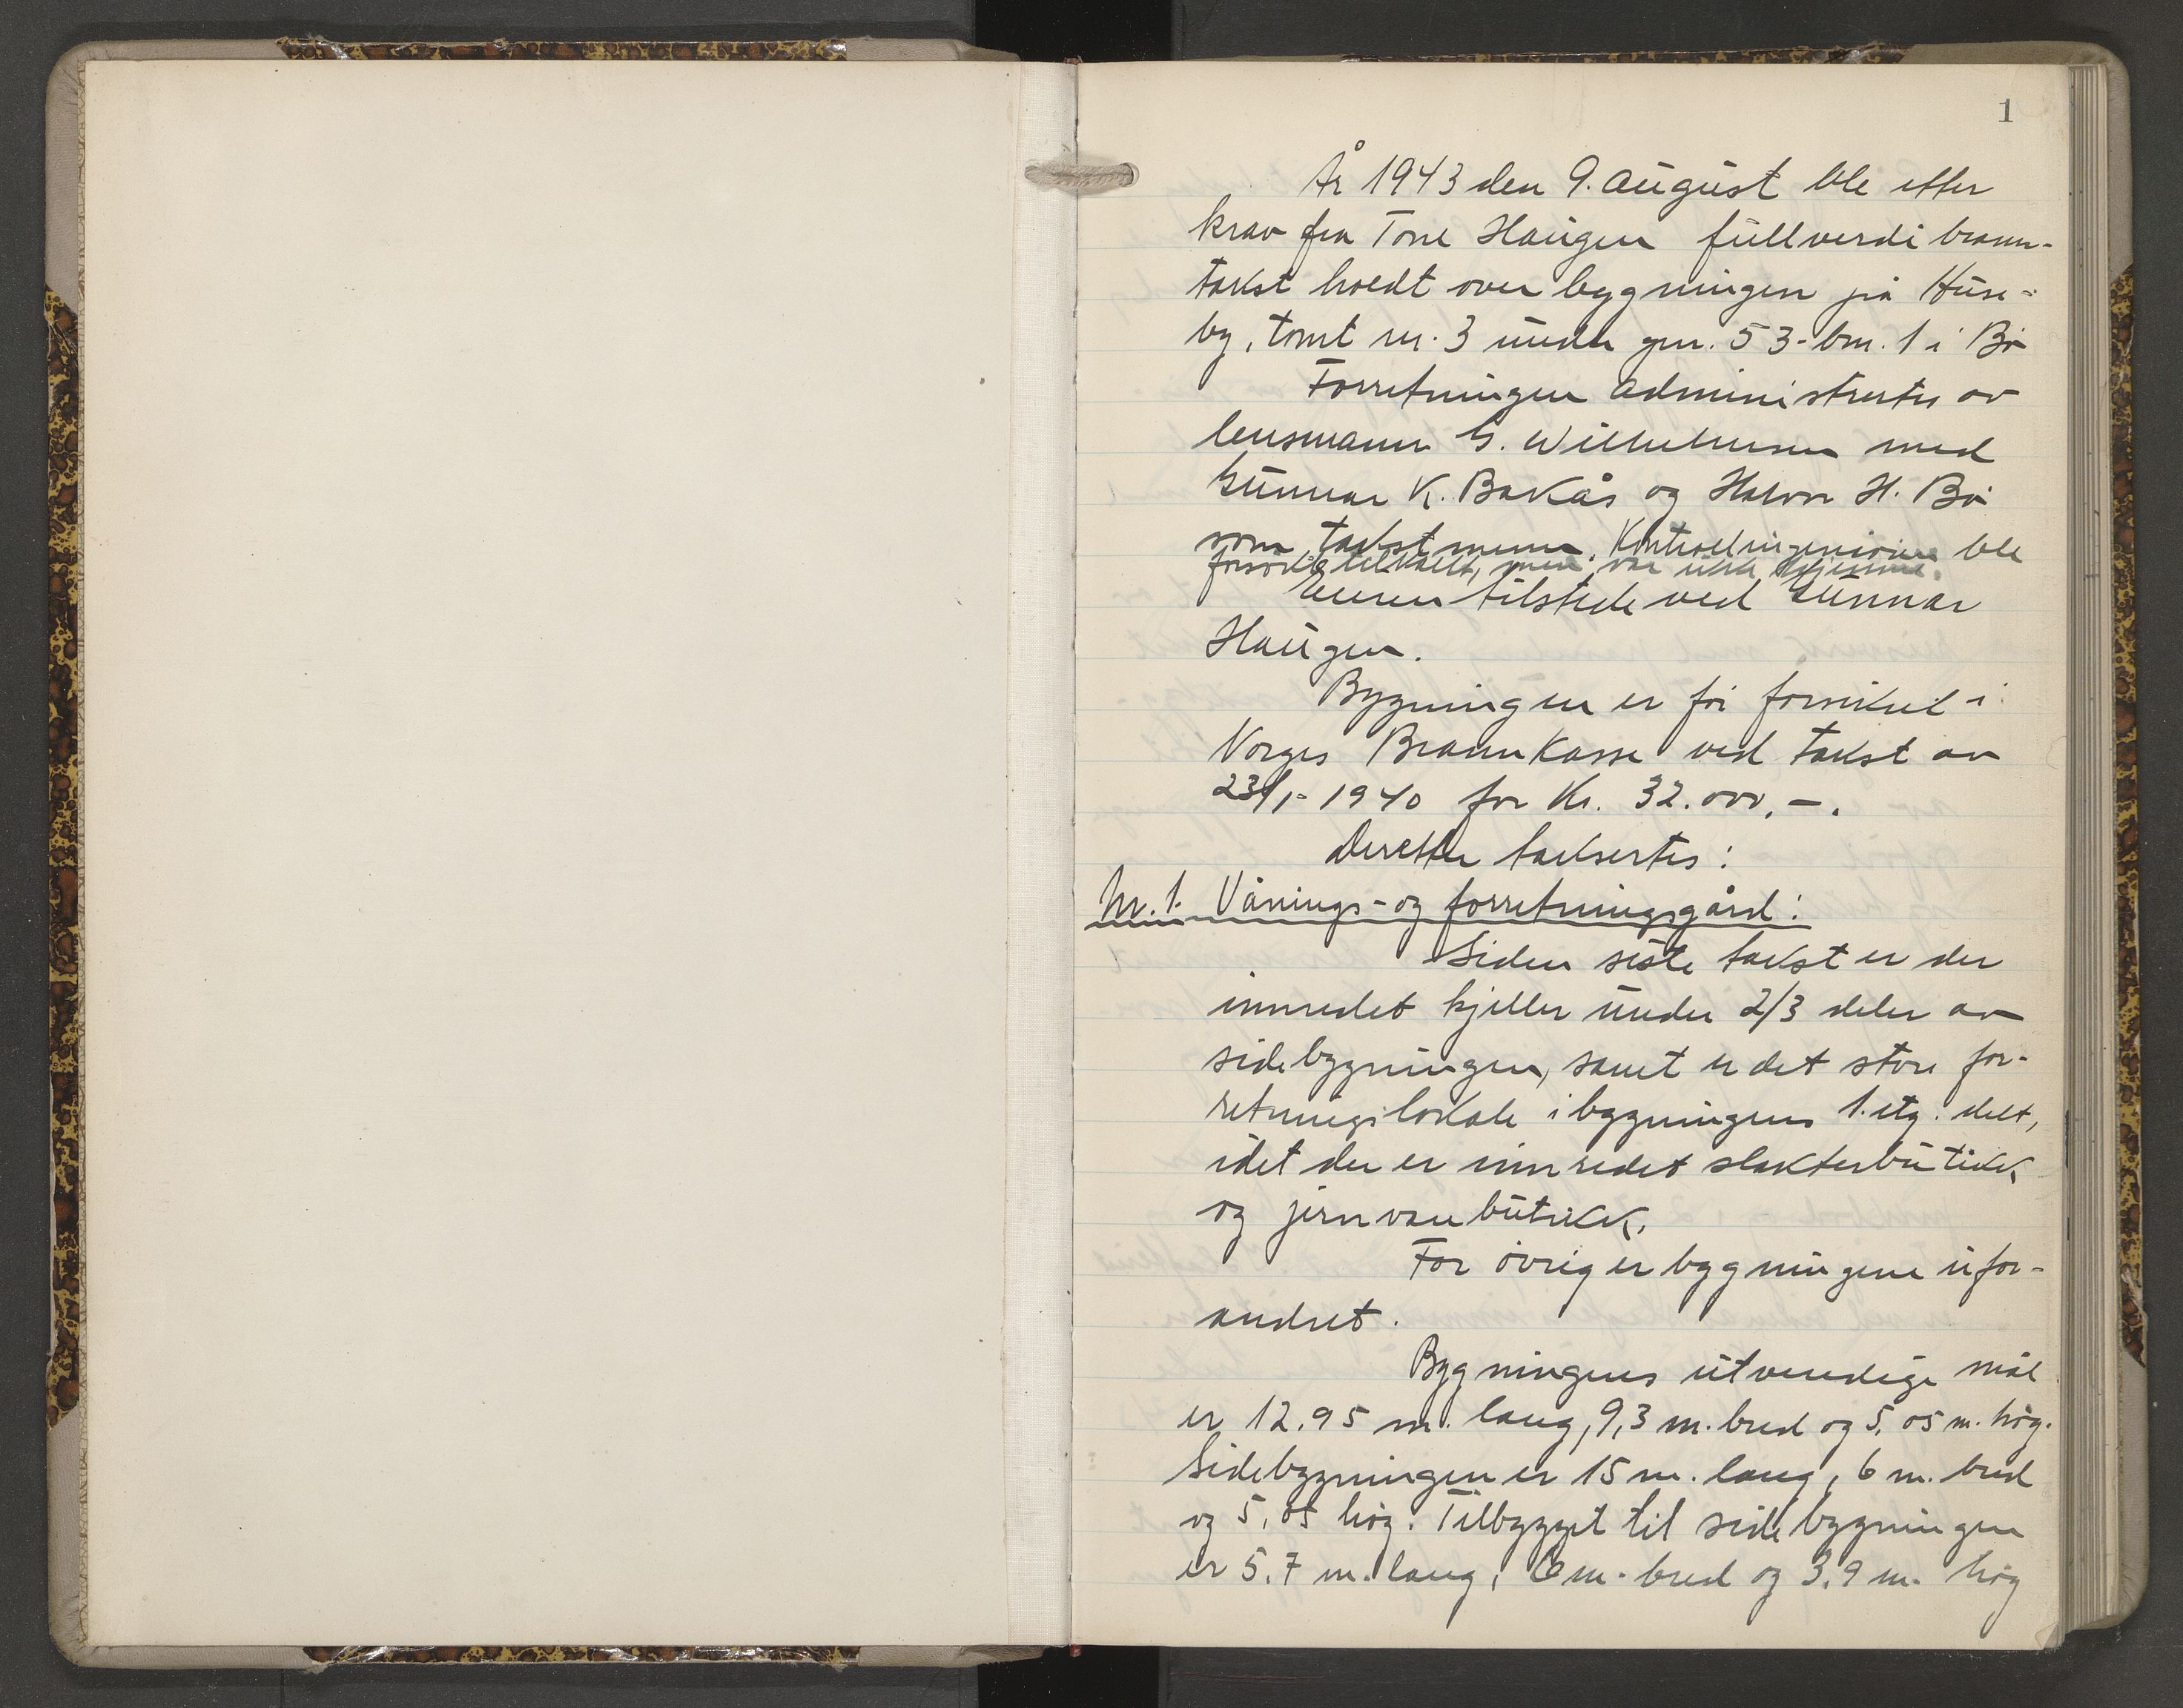 1
År 1943 den 9. august ble etter
krav fra Tone Haugen fullverdi brann-
takst holdt over bygningen på Huse-
by, tomt nr. 3 under gnr. 53 - bnr. 1 i Bø
Forretningen administrertes av
lensmann G. Wilhelmsen med
Gunnar K. Bakås og Halvor H. Bø
som takstmenn. Kontrollingeniøren ble
forsøkt tilkalt, men var ikke hjemme.
Eieren tilstede ved Gunnar
Haugen.
Bygningen er før forsikret i
Norges Brannkasse ved takst av
23/1- 1940 for Kr. 32.000,-.
Deretter taksertes:
Nr. 1. Vånings- og forretningsgård:
Siden siste takst er der
innredet kjeller under 2/3 deler av
sidebygningen, samt er det store for-
retningslokale i bygningens 1. etg. delt,
idet der er innredet slakterbutikk
og jernvarebutikk.
For øvrig er bygningene ufor-
andret.
Bygningens utvendige mål
er 12.95 m. lang, 9,3 m. bred og 5,05 m. høg.
Sidebygningen er 15 m. lang, 6 m. bred
og 5,05 høg. Tilbygget til sidebygningen
er 5.7 m. lang, 6 m. bred og 3.9 m. høg